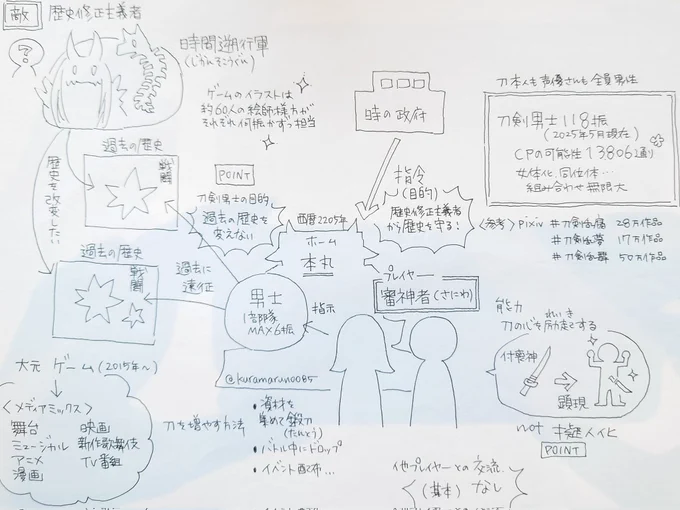 敵 歴史修正主義者
?
時間遡行軍
(じかんそこうぐん)
ゲームのイラストは
約60人の絵師様方が
それぞれ何振かずつ担当
時の政府
刀本人も声優さんも全員男性
刀剣男士118振
(2025年5月現在)
CPの可能性13806通り
女体化、同位体…
組み合わせ無限大
<参考> pixiv
28万作品
17万作品
50万作品
歴史を改変したい
過去の歴史
戦闘
過去の歴史
戦闘
POINT
刀剣男士の目的
過去の歴史を
変えない
過去に
遠征
指令
(目的)
歴史修正主義者
から歴史を守る!
西暦2205年
ホーム
本丸
プレイヤー
審神者(さにわ)
指示
男士
1部隊
MAX6振
@kuramaru0085
能力 れいき
刀の心を励起する
付喪神
顕現
not 擬人化
POINT
大元 ゲーム(2015年〜)
<メディアミックス>
舞台
ミュージカル
アニメ
漫画
映画
新作歌舞伎
TV番組
刀を増やす方法
・資材を
集めて鍛刀
(たんとう)
・バトル中にドロップ
・イベント配布…
他プレイヤーとの交流
(基本)なし